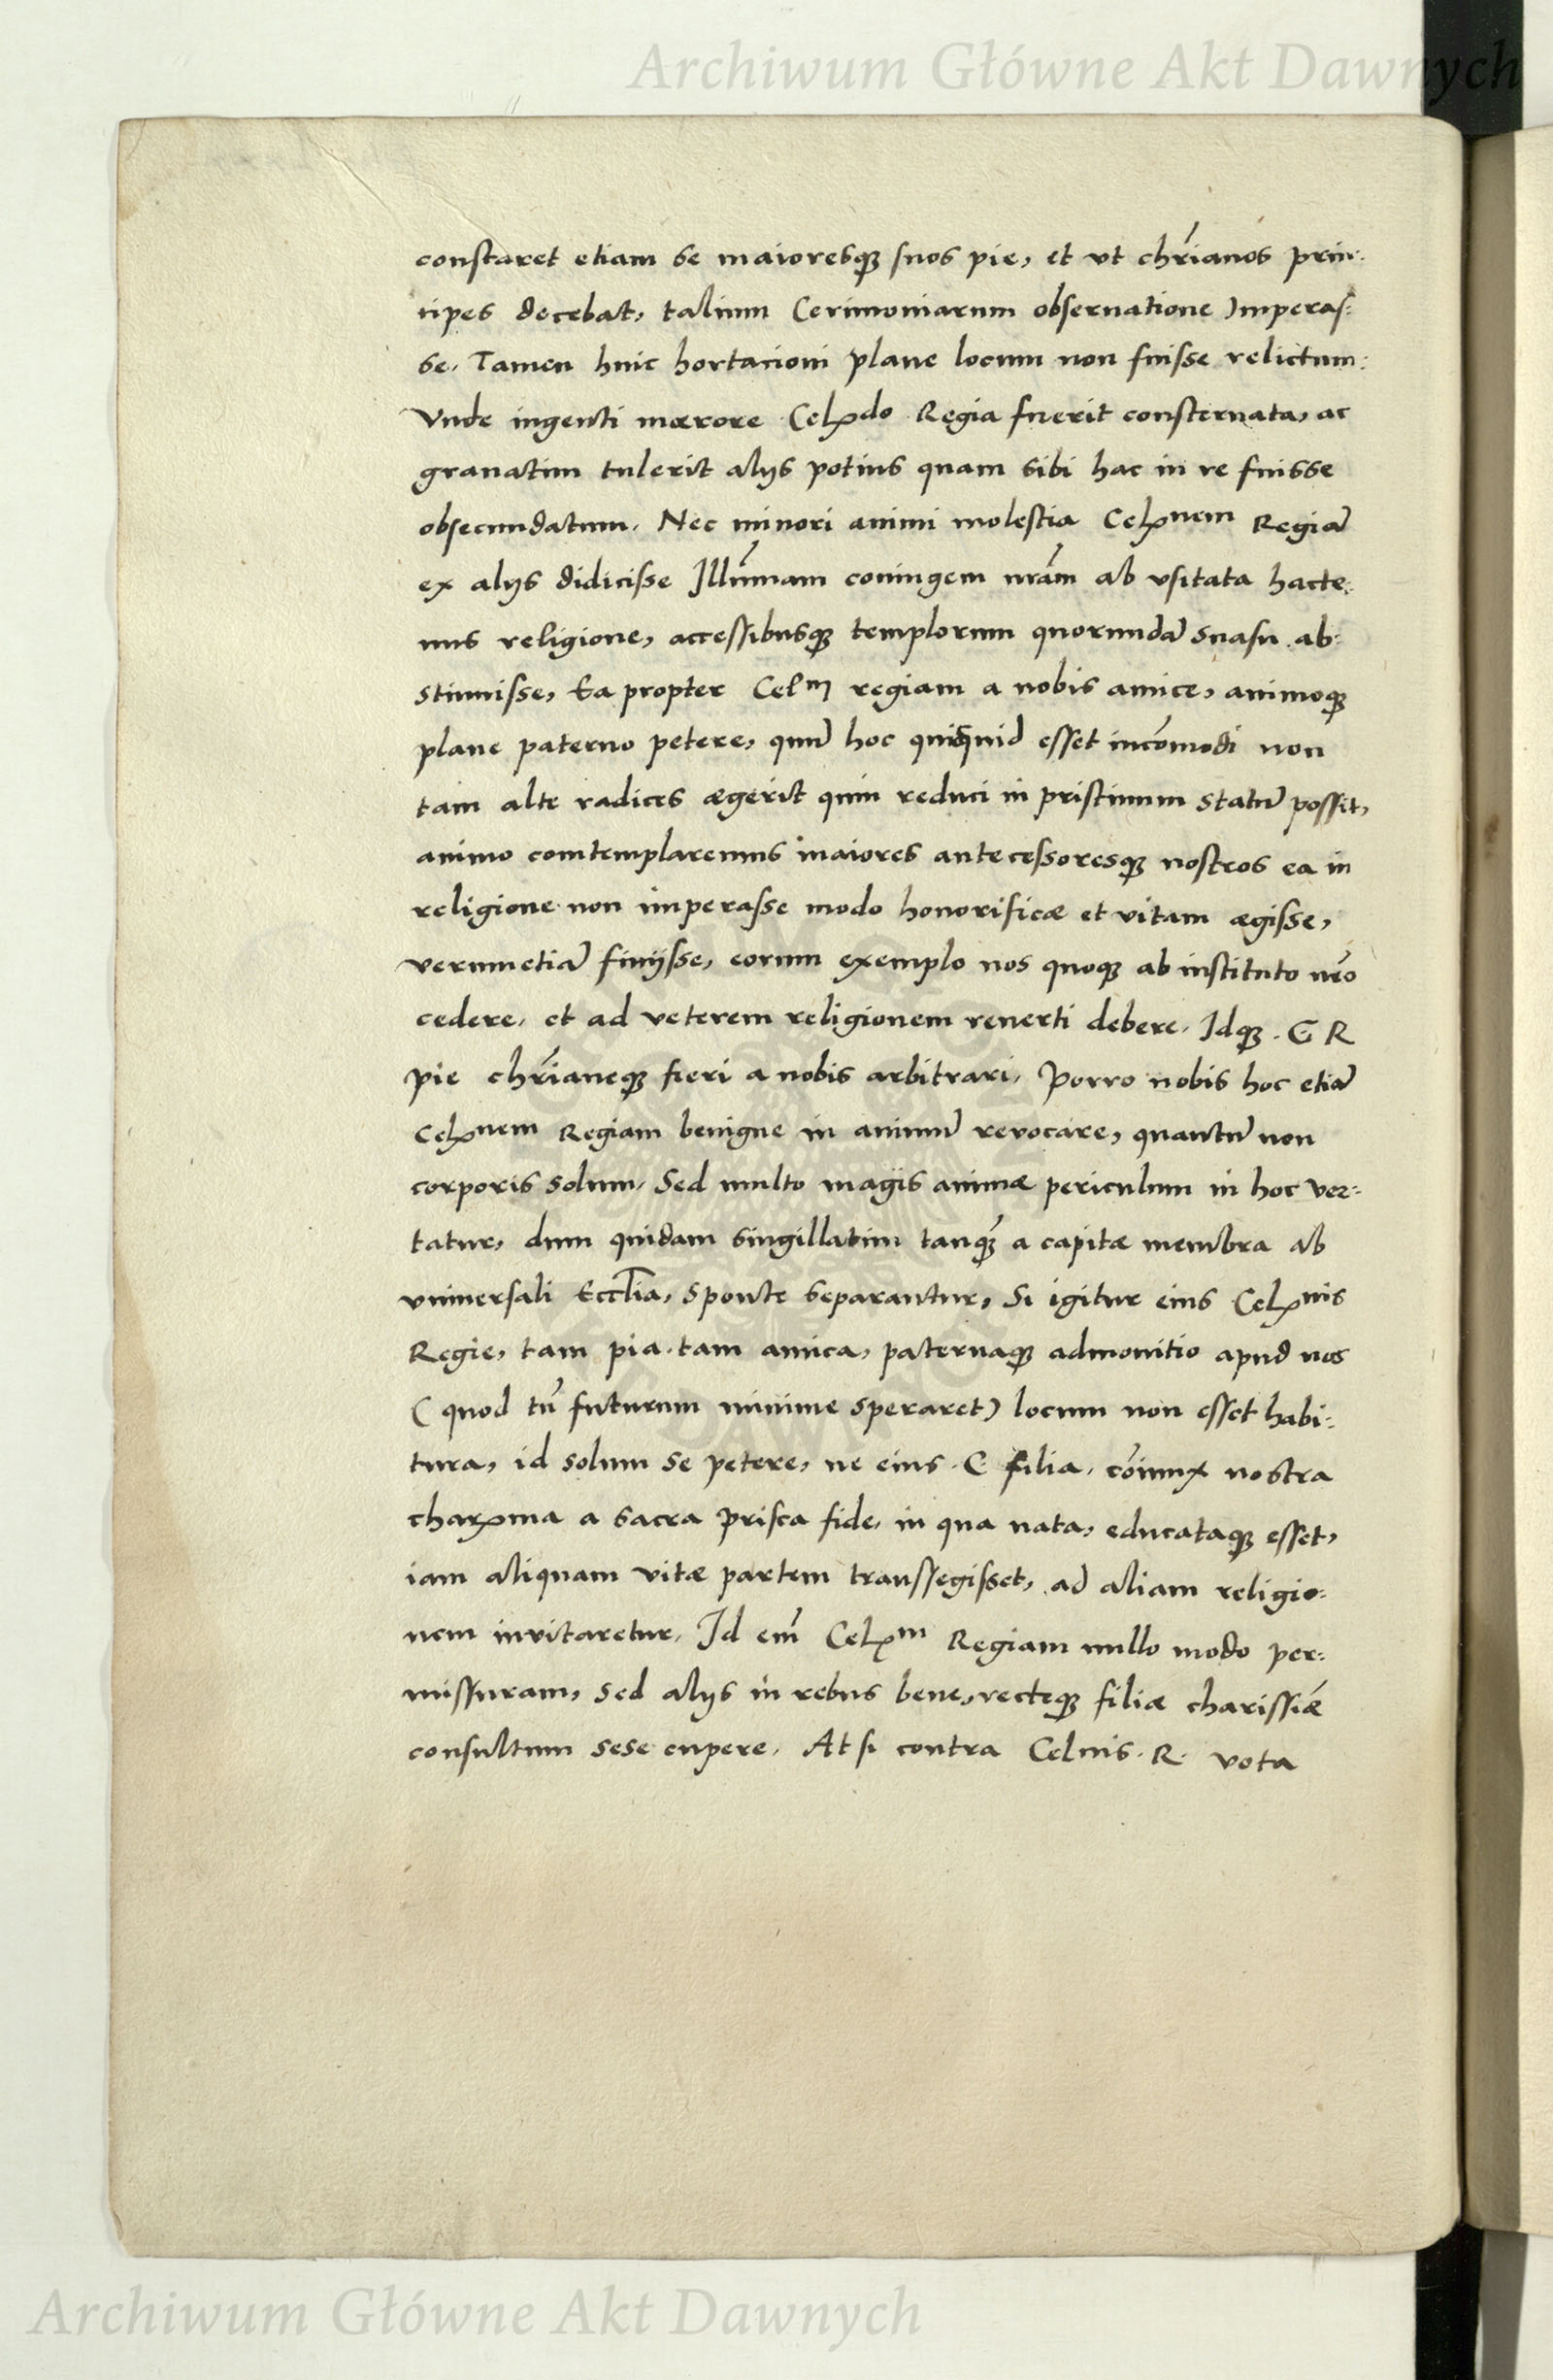 Archiwum Główne Akt Dawnych
constaret etiam se maioresq₃ suos pie, et vt chr̃ianos prin-
cipes decebat, talium Cerimoniarum obseruatione Imperas-
se. Tamen huic hortacioni plane locum non fuisse relictum:
Vnde ingenti mœrore Celₓdo Regia fuerit consternata, ac
grauatim tulerit alijs potius quam sibi hac in re fuisse
obsecundatum. Nec minori animi molestia Celₓnem Regiã
ex alijs didicisse Illr̃imam coniugem nr̃am ab vsitata hacte-
nus religione, accessibusq₃ templorum quorundã suasu ab-
stinuisse, Ea propter Celᵐ regiam a nobis amice, animoq₃
plane paterno petere, quũ hoc quicquid esset incõmodi non
tam alte radices ægerit quin reduci in pristinum statũ possit,
animo comtemplaremus maiores antecessoresq₃ nostros ea in
religione non imperasse modo honorificæ et vitam ægisse,
verumetiã finijsse, eorum exemplo nos quoq₃ ab instituto nr̃o
cedere, et ad veterem religionem reuerti debere. Idq₃ . C R
pie chr̃ianeq₃ fieri a nobis arbitrari. Porro nobis hoc etiã
Celₓnem Regiam benigne in animũ revocare, quantũ non
corporis solum, Sed multo magis animæ periculum in hoc ver-
tatur, dum quidam singillatim tanq₃̃ a capitæ membra ab
vniuersali Eccl̃ia, sponte separantur, Si igitur eius Celₓnis
Regie, tam pia tam amica, paternaq₃ admonitio apud nos
( quod tñ futurum minime speraret) locum non esset habi-
tura, id solum se petere, ne eius . C filia, cõiunx nostra
charₓma a sacra prisca fide, in qua nata, educataq₃ esset,
iam aliquam vitæ partem transsegisset, ad aliam religio-
nem invitaretur. Id em̃ Celₓᵐ Regiam nullo modo per-
missuram, sed alijs in rebus bene, recteq₃ filiæ charissiæ̃
consultum sese cupere. At si contra Celnis . R . vota
Archiwum Główne Akt Dawnych